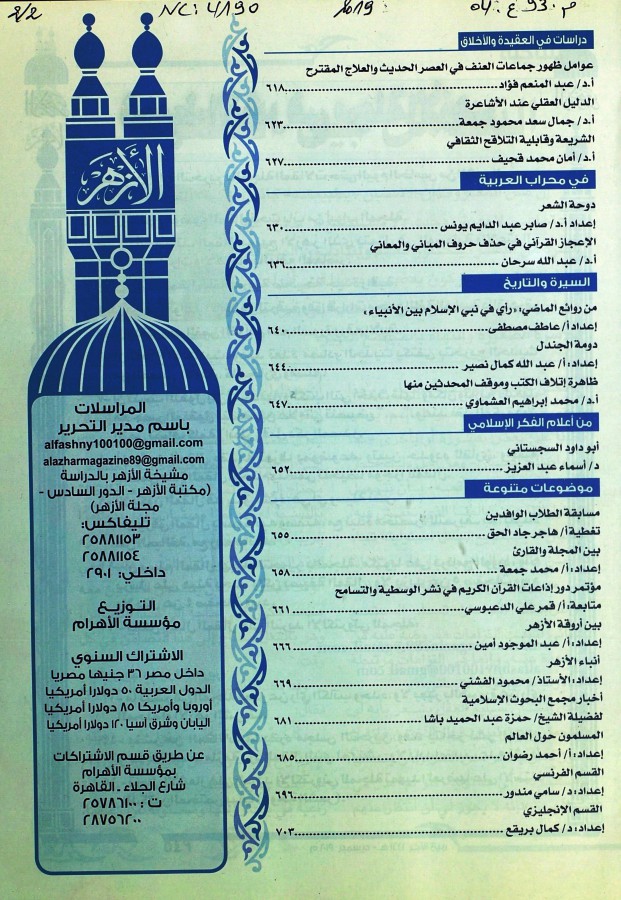 2/2
NC: 4/190
2019
م. 93. ع: 04
دراسات في العقيدة والأخلاق
عوامل ظهور جماعات العنف في العصر الحديث والعلاج المقترح
أ.د/ عبد المنعم فؤاد ٦١٨
الدليل العقلي عند الأشاعرة
أ.د/ جمال سعد محمود جمعة ٦٢٣
الشريعة وقابلية التلاقح الثقافي
أ.د/ أمان محمد قحيف ٦٢٧
في محراب العربية
دوحة الشعر
إعداد أ.د/ صابر عبد الدايم يونس ٦٣٠
الإعجاز القرآني في حذف حروف المباني والمعاني
أ.د/ عبد الله سرحان ٦٣٦
السيرة والتاريخ
من روائع الماضي: «رأي في نبي الإسلام بين الأنبياء»
إعداد أ/ عاطف مصطفى ٦٤٠
دومة الجندل
إعداد: أ/ عبد الله كمال نصير ٦٤٤
ظاهرة إتلاف الكتب وموقف المحدثين منها
أ.د/ محمد إبراهيم العشماوي ٦٤٧
من أعلام الفكر الإسلامي
أبو داود السجستاني
د/ أسماء عبد العزيز ٦٥٢
موضوعات متنوعة
مسابقة الطلاب الوافدين
تغطية أ/ هاجر جاد الحق ٦٥٥
بين المجلة والقارئ
إعداد: أ/ محمد جمعة ٦٥٨
مؤتمر دور إذاعات القرآن الكريم في نشر الوسطية والتسامح
متابعة: أ/ قمر علي الدعبوسي ٦٦١
بين أروقة الأزهر
إعداد: أ/ عبد الموجود أمين ٦٦٦
أنباء الأزهر
إعداد: الأستاذ/ محمود الفشني ٦٦٩
أخبار مجمع البحوث الإسلامية
لفضيلة الشيخ/ حمزة عبد الحميد باشا ٦٨١
المسلمون حول العالم
إعداد: أ/ أحمد رضوان ٦٨٥
القسم الفرنسي
إعداد: د/ سامي مندور ٦٩٦
القسم الإنجليزي
إعداد: د/ كمال بريقع ٧٠٣
الأزهر
المراسلات
باسم مدير التحرير
alfashny100100@gmail.com
alazharmagazine89@gmail.com
مشيخة الأزهر بالدراسة
(مكتبة الأزهر - الدور السادس -
مجلة الأزهر)
تليفاكس:
٢٥٨٨١١٥٣
٢٥٨٨١١٥٤
داخلي: ٢٩٠١
التوزيع
مؤسسة الأهرام
الاشتراك السنوي
داخل مصر ٣٦ جنيها مصريا
الدول العربية ٥٠ دولارا أمريكيا
أوروبا وأمريكا ٨٥ دولارا أمريكيا
اليابان وشرق آسيا ١٢٠ دولارا أمريكيا
عن طريق قسم الاشتراكات
بمؤسسة الأهرام
شارع الجلاء ـ القاهرة
ت : ٢٥٧٨٦١٠٠
٢٨٧٥٦٢٠٠